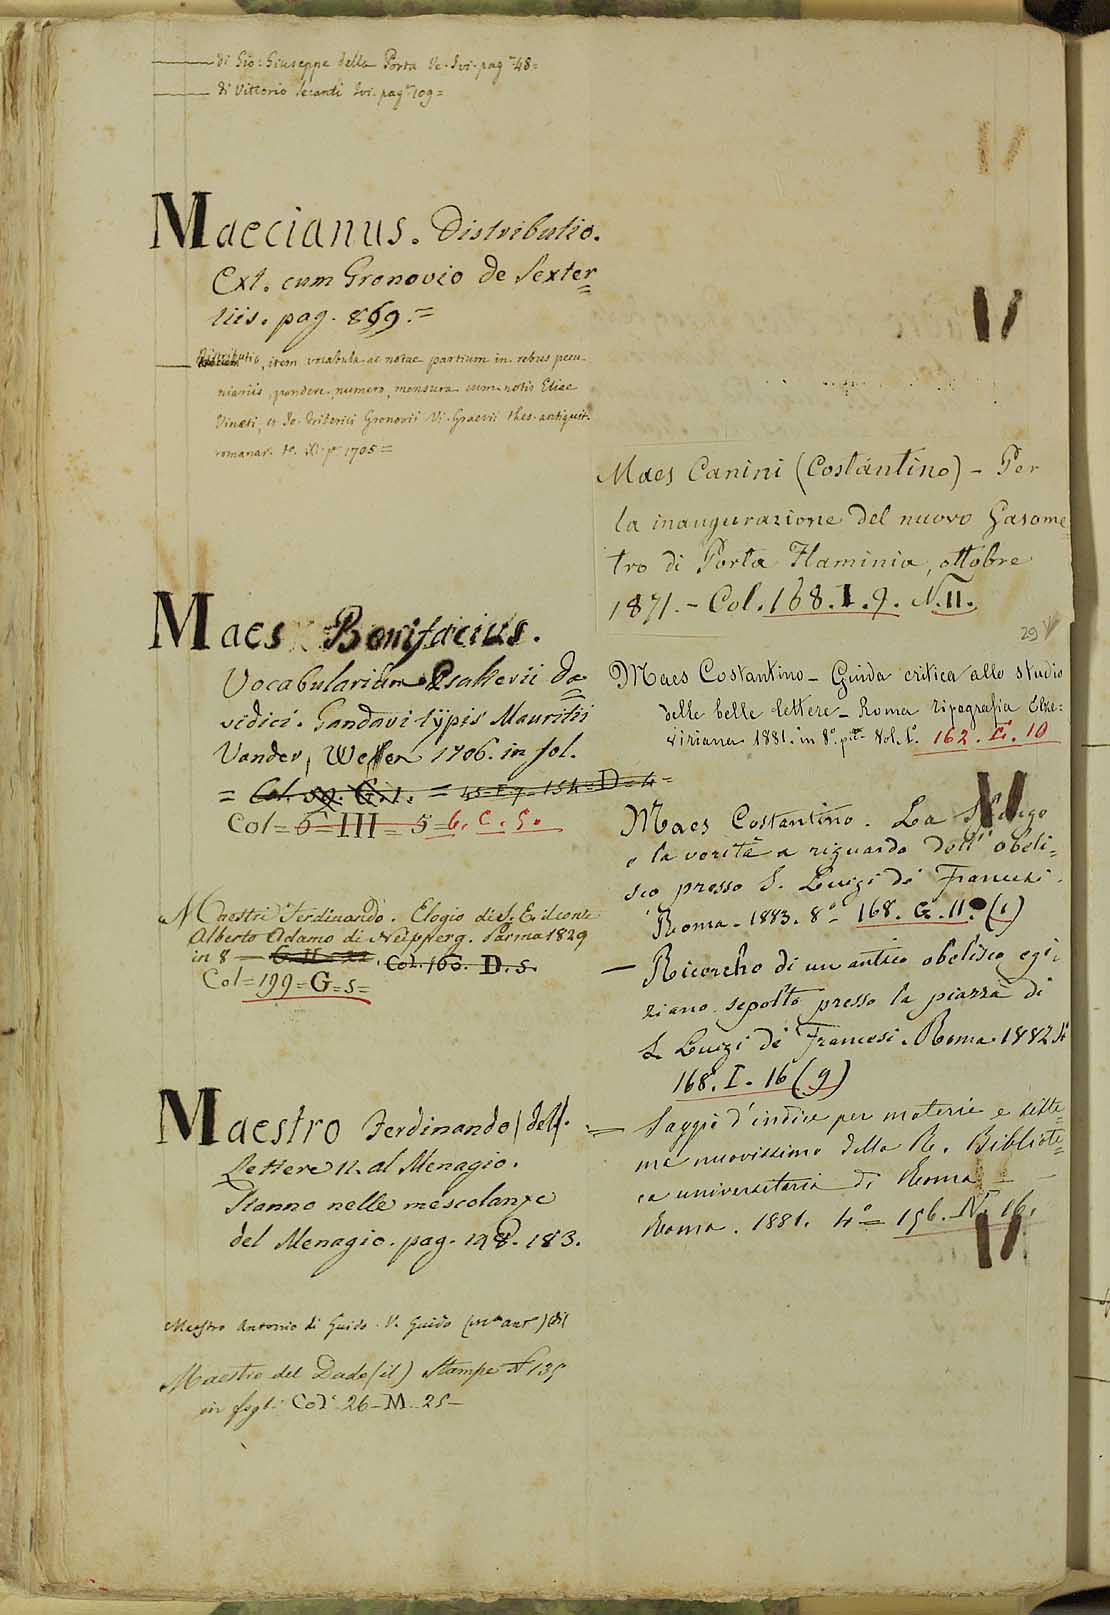 di Gio: Giuseppe della Porta Ve. Ivi. pag. 48=
di Vittorio Secanti Ivi. pag. 109=
Maecianus. Distributio.
Ext. cum Gronovio de Sexter=
tiis. pag. 869.=
Distributio, item vocabula ac notae partium in rebus pecu-
niariis, pondere, numero, mensura cum notis Eliae
Vineti, et Io. Friderici Gronovii Vi. Graevii thes. antiquit.
romanar. to. XI. p. 1705=
Maes Bonifacius.
Vocabularium Psalterii Da=
vidici. Gandavi typis Mauritii
Vander,Ween 1706. in fol.
= Col. 59. G. 1. = 45=F7=154=D=4=
Col=6=III=5=6. C. 5.
Maestri Ferdinando. Elogio di S. E. il conte
Alberto Adamo di Neipperg. Parma 1829
in 8 — Col. 166. D. 5.
Col=199=G=5=
Maestro Ferdinando (del).
Lettere 11. al Menagio.
Stanno nelle mescolanze
del Menagio. pag. 198. 183.
Maestro Antonio di Guido. V. Guido (m.ro ant.) (di)
Maestro del Dado (il) Stampe N 135
in fogl. Col. 26-M-25-
Maes Canini (Costantino) - Per
la inaugurazione del nuovo Gasome=
tro di Porta Flaminia, ottobre
1871. - Col. 168. I. 9. N. 11.
29 V
Maes Costantino - Guida critica allo studio
delle belle lettere - Roma tipografia Elze=
viriana 1881. in 8.° p.° Vol. 1.° 162. E. 10
Maes Costantino. La Sfinge
e la verità a riguardo dell'obeli=
sco presso S. Luigi de' Francesi.
Roma. 1883. 8.° 168. G. 11. (1)
— Ricerche di un antico obelisco egi=
ziano sepolto presso la piazza di
S. Luigi de' Francesi. Roma. 1882
168. I. 16 (9)
= Saggio d'indice per materie e siste=
ma nuovissimo della R. Bibliote=
ca universitaria di Roma —
Roma. 1881. 4.° = 156. N. 16.